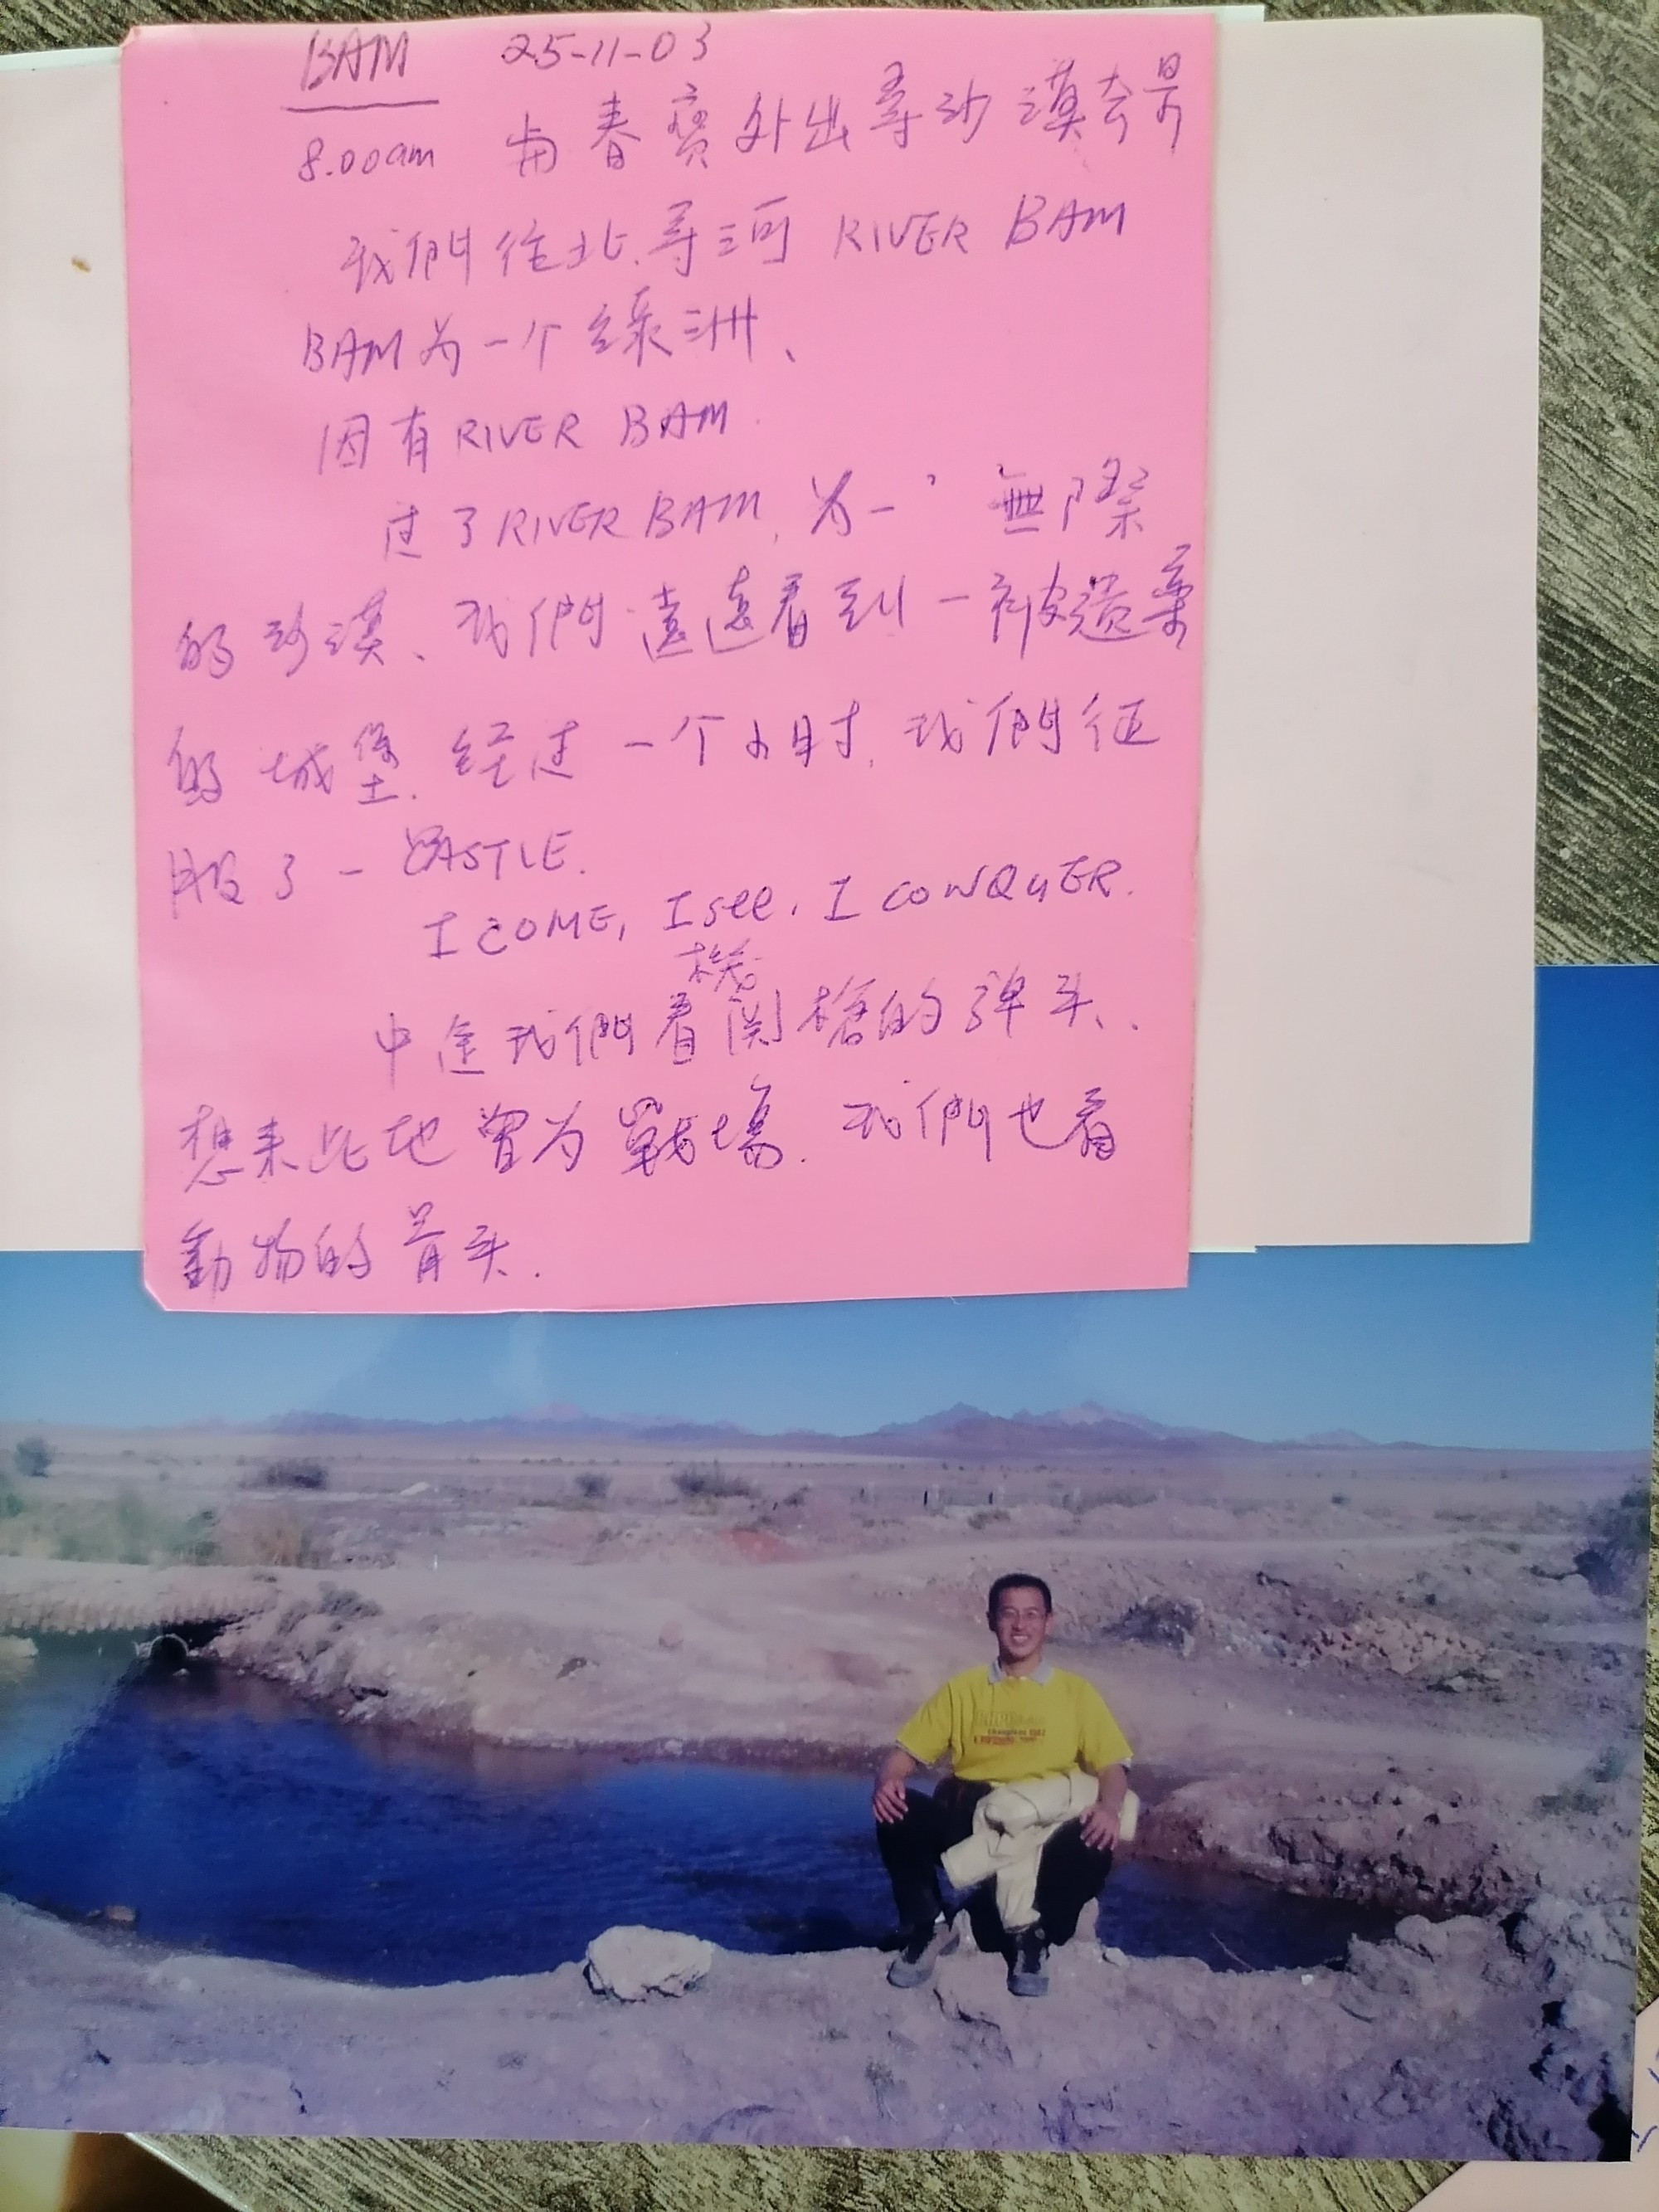 BAM 25-11-03
8.00am 与春寶外出尋沙漠奇景
我們往北.尋河 RIVER BAM
BAM为一个綠洲、
因有RIVER BAM.
过了RIVER BAM, 为一 無際
的沙漠、我們遠遠看到一被遗棄
的城堡. 经过一个小时, 我們征
服了一CASTLE.
I COME, I see, I CONQUER.
中途我們看機関槍的弹头、.
想来此地曾为戰場. 我們也看
動物的骨头.